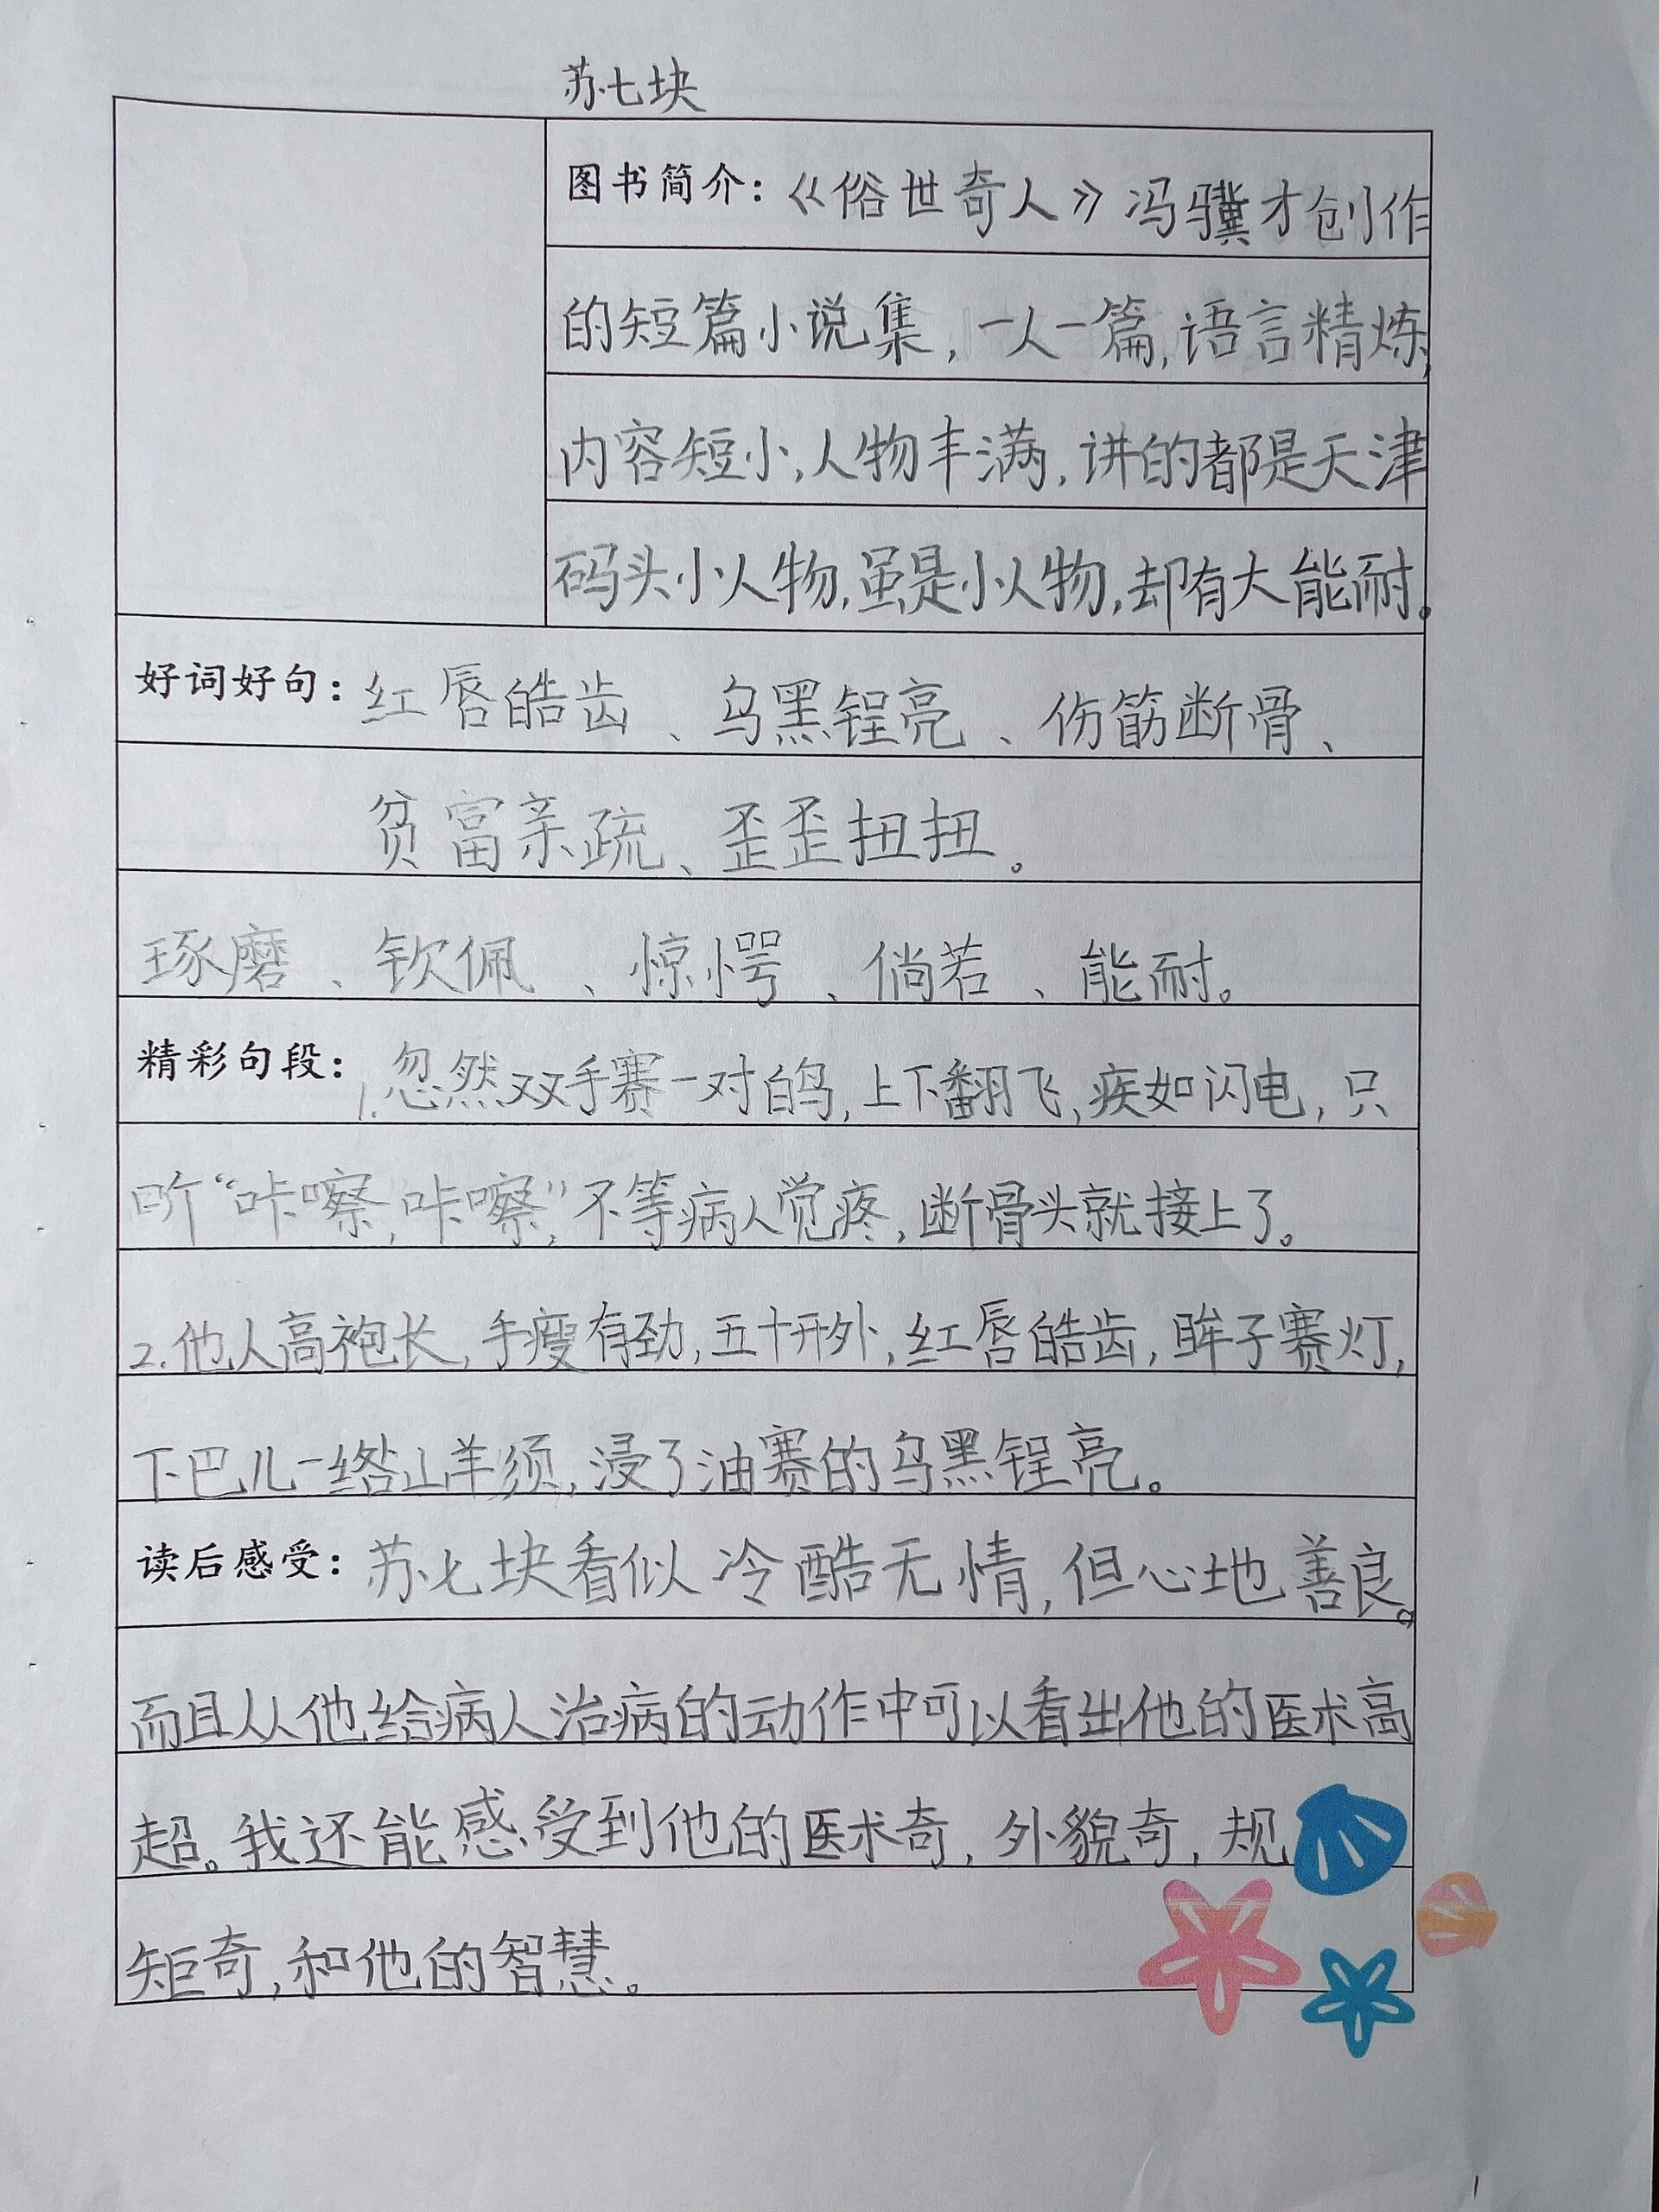 苏七块
图书简介：《俗世奇人》冯骥才创作
的短篇小说集，一人一篇，语言精炼，
内容短小，人物丰满，讲的都是天津
码头小人物，虽是小人物，却有大能耐。
好词好句：红唇皓齿、乌黑锃亮、伤筋断骨、
贫富亲疏、歪歪扭扭。
琢磨、钦佩、惊愕、倘若、能耐。
精彩句段：1.忽然双手赛一对白鸟，上下翻飞，疾如闪电，只
听“咔嚓，咔嚓”，不等病人觉疼，断骨头就接上了。
2.他人高袍长，手瘦有劲，五十开外，红唇皓齿，眸子赛灯，
下巴儿一绺山羊须，浸了油赛的乌黑锃亮。
读后感受：苏七块看似冷酷无情，但心地善良。
而且从他给病人治病的动作中可以看出他的医术高
超。我还能感受到他的医术奇，外貌奇，规
矩奇，和他的智慧。